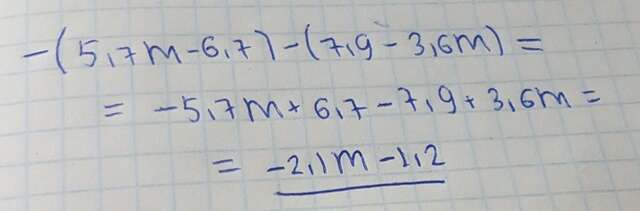 -(5,7m-6,7)-(7,9-3,6m)=
= -5,7m+6,7-7,9+3,6m=
= -2,1m-1,2